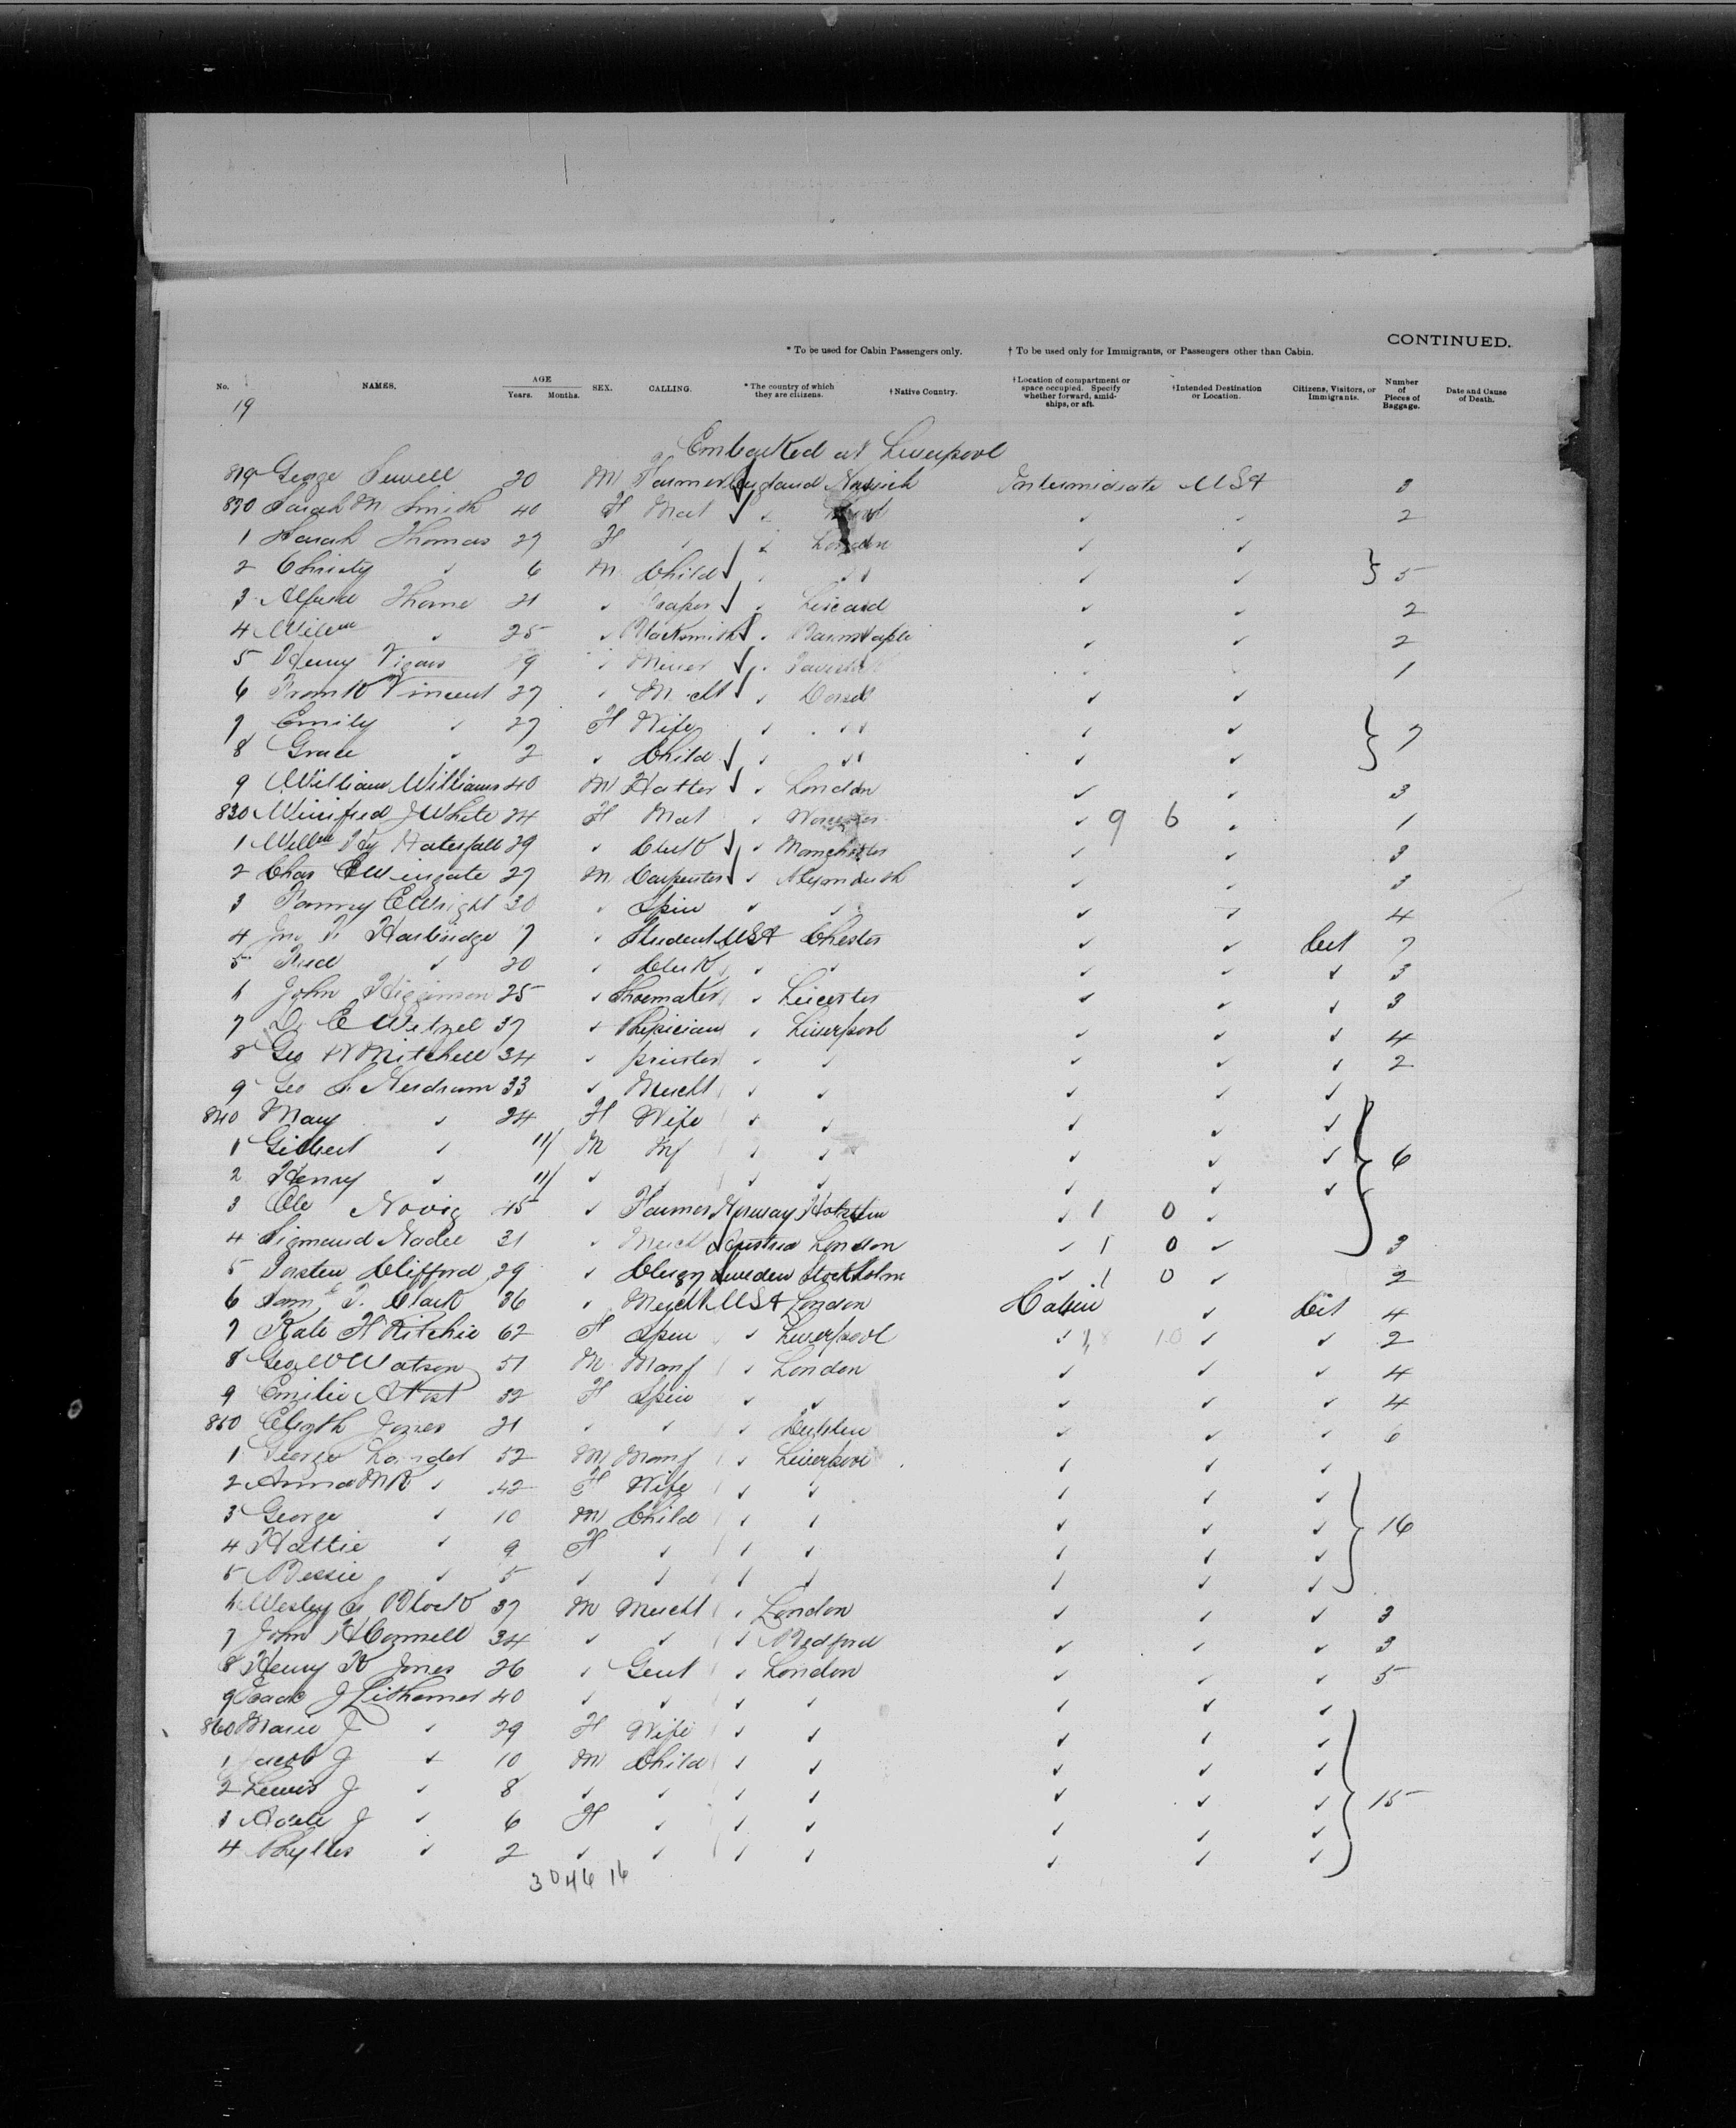 CONTINUED.
* To be used for Cabin Passengers only. † To be used only for Immigrants, or Passengers other than Cabin.
No. NAMES. AGE Years. Months. SEX. CALLING. * The country of which they are citizens. †Native Country. †Location of compartment or space occupied. Specify whether forward, amidships, or aft. †Intended Destination or Location. Citizens, Visitors, or Immigrants. Number of Pieces of Baggage. Date and Cause of Death.
19
Embarked at Liverpool
819 George Sewell 20 M Farmer England Norwich Intermediate USA 3
820 Sarah M Smith 40 F Mat ✓ ✓ ✓ 2
1 Sarah Thomas 27 F ✓ ✓ London ✓ ✓
2 Christy ✓ 6 M Child ✓ ✓ ✓ ✓ } 5
3 Alfred Thorne 21 ✓ Draper ✓ Liscard ✓ ✓ 2
4 Willm ✓ 25 ✓ Blacksmith ✓ Barnstaple ✓ ✓ 2
5 Henry Vigars ✓ Miner ✓ 1
6 Frank Vincent 27 ✓ Mcht ✓ Dorset ✓ ✓
7 Emily ✓ 27 F Wife ✓ ✓ ✓ ✓ ✓
8 Grace ✓ 2 ✓ Child ✓ ✓ ✓ ✓ } 7
9 William Williams 40 M Hatter ✓ London ✓ ✓ 3
830 Winifred J White 24 F Mat ✓ ✓ 9 6 ✓ 1
1 Willm Hy Waterfall 29 ✓ Clerk ✓ Manchester ✓ ✓ 3
2 Chas E Wingate 27 M Carpenter ✓ ✓ ✓ 3
3 Fanny E Wright 30 ✓ Spin ✓ ✓ ✓ ✓ 4
4 Jno F Harbridge 7 ✓ Student USA Chester ✓ ✓ Cit 7
5 Fred ✓ 20 ✓ Clerk ✓ ✓ ✓ ✓ ✓ 3
6 John Higginson 25 ✓ Shoemaker ✓ Leicester ✓ ✓ ✓ 3
7 Dr E Wetzel 37 ✓ Physician ✓ Liverpool ✓ ✓ ✓ 4
8 Geo W Mitchell 34 ✓ printer ✓ ✓ ✓ ✓ ✓ 2
9 Geo S Nerdrum 33 ✓ Mercht ✓ ✓ ✓ ✓ ✓
840 Mary ✓ 24 F Wife ✓ ✓ ✓ ✓ ✓
1 Gilbert ✓ 11/ M Inf ✓ ✓ ✓ ✓ ✓ } 6
2 Henry ✓ 11/ ✓ ✓ ✓ ✓ ✓ ✓ ✓
3 Ole Novig 45 ✓ Farmer Norway ✓ 1 0 ✓
4 Sigmund Nadel 31 ✓ Mercht Austria London ✓ 1 0 ✓ 3
5 Torsten Clifford 29 ✓ Clergy Sweden Stockholm ✓ 1 0 ✓ 2
6 Sam T. Clark 36 ✓ Mercht USA London Cabin ✓ Cit 4
7 Kate H Ritchie 62 F Spin ✓ Liverpool ✓ 18 10 ✓ ✓ 2
8 Geo W Watson 51 M Manf ✓ London ✓ ✓ ✓ 4
9 Emilie A Post 32 F Spin ✓ ✓ ✓ ✓ ✓ 4
850 Elizth Jones 21 ✓ ✓ ✓ ✓ ✓ ✓ 6
1 George 52 M Manf ✓ Liverpool ✓ ✓ ✓
2 Anna MK ✓ 42 F Wife ✓ ✓ ✓ ✓ ✓
3 George ✓ 10 M Child ✓ ✓ ✓ ✓ ✓ } 16
4 Hattie ✓ 9 F ✓ ✓ ✓ ✓ ✓ ✓
5 Bessie ✓ 5 ✓ ✓ ✓ ✓ ✓ ✓ ✓
6 Wesley G Block 37 M Mercht ✓ London ✓ ✓ ✓ 3
7 John H Connell 34 ✓ ✓ ✓ Bedford ✓ ✓ ✓ 3
8 Henry K Jones 26 ✓ Gent ✓ London ✓ ✓ ✓ 5
9 Isaac J 40 ✓ ✓ ✓ ✓ ✓ ✓ ✓
860 Marie J ✓ 29 F Wife ✓ ✓ ✓ ✓ ✓
1 Jacob J ✓ 10 M Child ✓ ✓ ✓ ✓ ✓
2 Lewis J ✓ 8 ✓ ✓ ✓ ✓ ✓ ✓ ✓ } 15
3 Adele J ✓ 6 F ✓ ✓ ✓ ✓ ✓ ✓
4 Phyllis ✓ 2 ✓ ✓ ✓ ✓ ✓ ✓ ✓
30 46 16